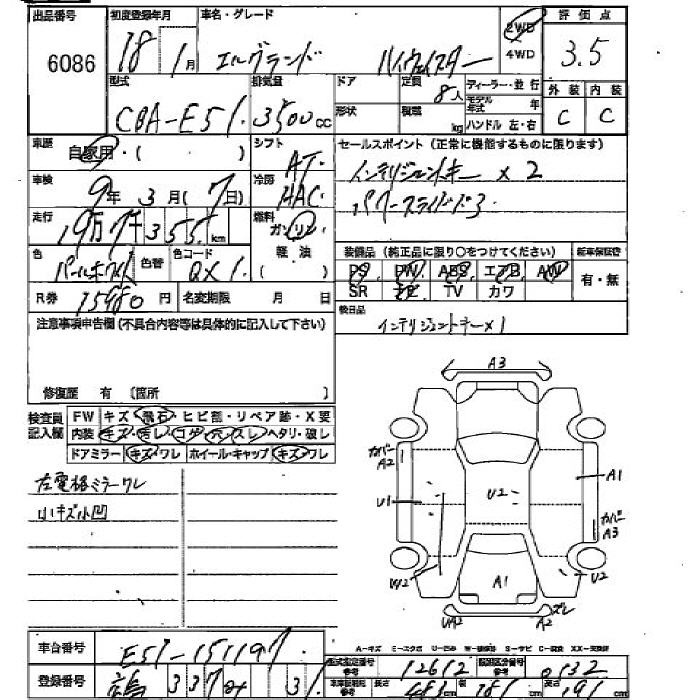 出品番号 初度登録年月 車名・グレード 2WD 評価点
6086 18年 1月 エルグランド ハイウェイスター 4WD 3.5
型式 排気量 ドア 定員 ディーラー・並行 外装 内装
CBA-E51 3500cc 8人 モデル年式 年 C C
形状 積載 kg ハンドル 左・右
車歴 自家用・( ) シフト AT セールスポイント(正常に機能するものに限ります)
車検 9年3月(7日) 冷房 AAC インテリジェントキー×2
走行 19万7千355km 燃料 ガソリン パワースライドドア
軽油
( )
色 色替 色コード QX1 装備品(純正品に限り〇をつけてください) 新車保証書
PS PW ABS エアB AW 有・無
R券 15480円 名変期限 月 日 SR ナビ TV カワ
注意事項申告欄(不具合内容等は具体的に記入して下さい) 後日品
インテリジェントキー×1
修復歴 有 〔箇所 〕
検査員記入欄 FW キズ・飛石・ヒビ割・リペア跡・X要
内装 キズ・汚レ・コゲ・穴・スレ・ヘタリ・破し
ドアミラー キズ・ワレ ホイール・キャップ キズ・ワレ
左電格ミラーワレ
小キズ小凹
A3
カバー A2
A1
U1
U2
カバー A3
W2
A1
U2
UA2
A2
ズレ
A-キズ
車台番号 E51-151197 型式指定番号 12612 類別区分番号 0132
登録番号 参考 参考 長さ 483cm 幅 181cm 高さ 191cm